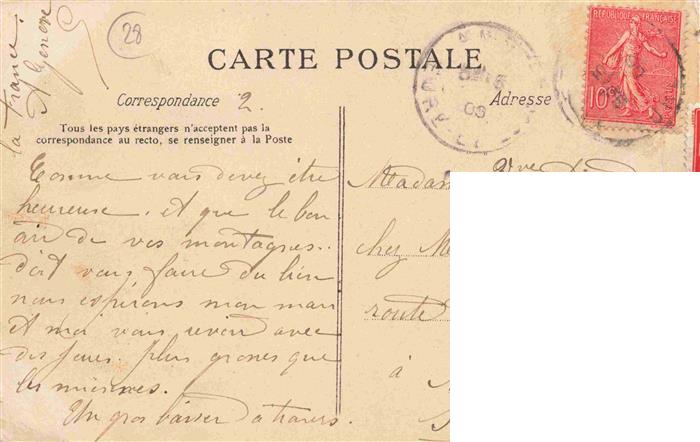 28
la france.
St Geneve
CARTE POSTALE
RÉPUBLIQUE FRANÇAISE
10
Correspondance 2.
Adresse
Tous les pays étrangers n'acceptent pas la
correspondance au recto, se renseigner à la Poste
Comme vous devez être
heureuse. et que le bon
air de vos montagnes..
doit vous faire du bien
nous espérons mon mari
et moi vous revoir avec
des joues. plus grosses que
les miennes.
Un gros baiser a travers.
Madam
Vve
chez M
route
à